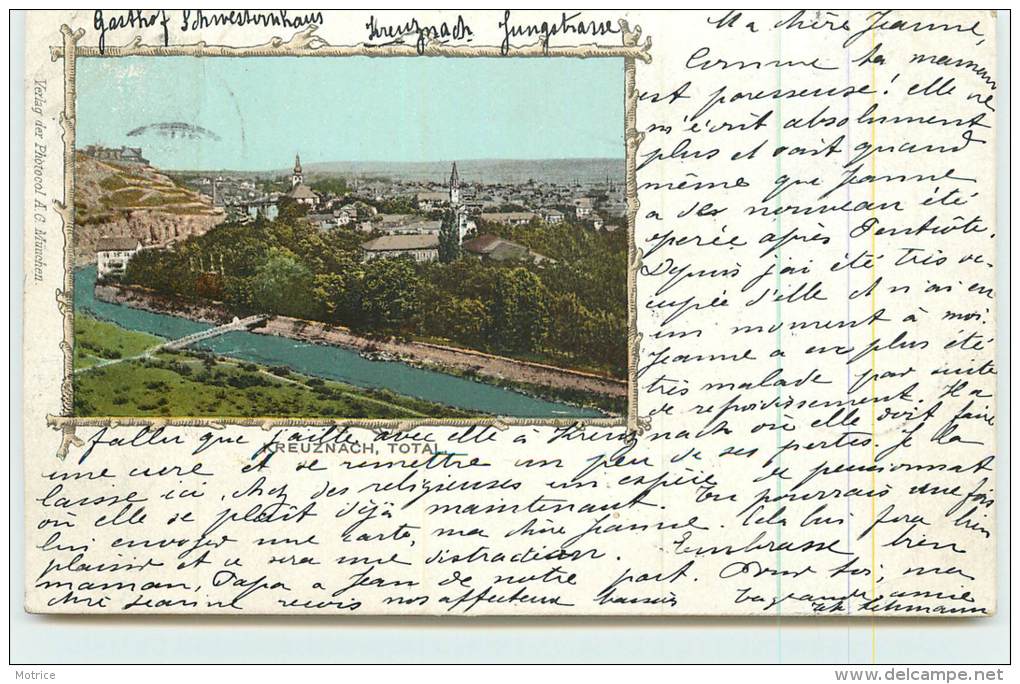 Gasthof Schwesternhaus Kreuznach Jungstrasse
Verlag der Photocol A.G. München.
Ma chère Jeanne,
Comme ta maman
est paresseuse! elle ne
m'écrit absolument
plus et sait quand
même que Jeanne
a de nouveau été
operée après Pentcôte.
Depuis j'ai été très oc-
cupée d'elle et n'ai en
un moment à moi.
Jeanne a en plus été
très malade par suite
de refroidissement. Il a
fallu que j'aille avec elle à Kreuznach où elle doit faire
KREUZNACH, TOTAL.
une cure et se remettre un peu de ses pertes. Je la
laisse ici, chez des religieuses un espèce de pensionnat
où elle se plait déjà maintenant. Tu pourrais une fois
lui envoyer une carte, ma chère Jeanne. Cela lui fera bien
plaisir et ce sera une distraction. Embrasse bien
maman, Papa a Jean de notre part. Pour toi, ma
chère Jeanne reçois nos affectueux baisers Ta grande amie
Lehmann
Motrice
www.delcampe.net